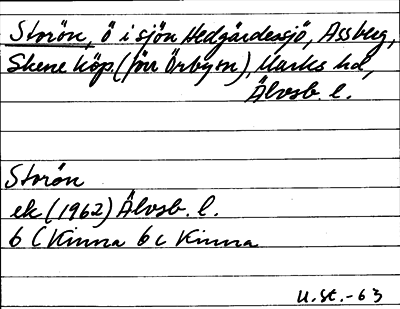 Storön, ö i sjön Hedgärdessjö, Assberg,
Skene köp. (förr Örby sn), Marks hd,
Älvsb. l.
Storön
ek (1962) Älvsb. l.
6 C Kinna 6 c Kinna
U.St.-63